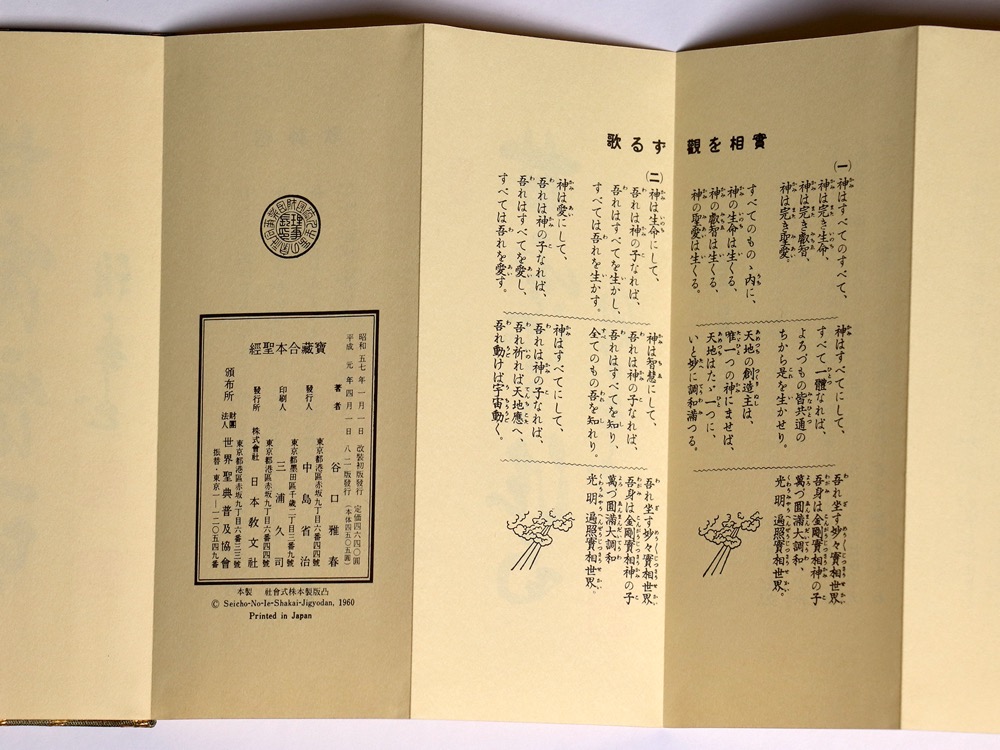 實相を觀ずる歌
(一)
神はすべてのすべて、
神は完き生命、
神は完き叡智、
神は完き聖愛。
すべてのものゝ内に、
神の生命は生くる、
神の叡智は生くる、
神の聖愛は生くる。
神はすべてにして、
すべて一體なれば、
よろづもの皆共通の
ちから是を生かせり。
天地の創造主は、
唯一つの神にませば、
天地はたゞ一つに、
いと妙に調和満つる。
吾れ坐す妙々實相世界
吾身は金剛實相神の子
萬づ圓満大調和、
光明遍照實相世界。
(二)
神は生命にして、
吾れは神の子なれば、
吾れはすべてを生かし、
すべては吾れを生かす。
神は愛にして、
吾れは神の子なれば、
吾れはすべてを愛し、
すべては吾れを愛す。
神は智慧にして、
吾れは神の子なれば、
吾れはすべてを知り、
全てのもの吾を知れり。
神はすべてにして、
吾れは神の子なれば、
吾れ祈れば天地應へ、
吾れ動けば宇宙動く。
吾れ坐す妙々實相世界
吾身は金剛實相神の子
萬づ圓満大調和
光明遍照實相世界。
昭和五七年一月一日 改裝初版發行
平成元年四月一日 八二版發行
定價四六四〇圓
(本体四五〇五圓)
寶藏合本聖經
著者 谷口雅春
發行人 中島省治
東京都港區赤坂九丁目六番四四號
印刷人 三浦久司
東京都墨田區千歳二丁目三番九號
發行所 株式會社 日本教文社
東京都港區赤坂九丁目六番四四號
頒布所 財團法人 世界聖典普及協會
東京都港區赤坂九丁目六番三三號
振替・東京一—一二〇五四九番
凸版製本株式會社 製本
© Seicho-No-Ie-Shakai-Jigyodan, 1960
Printed in Japan